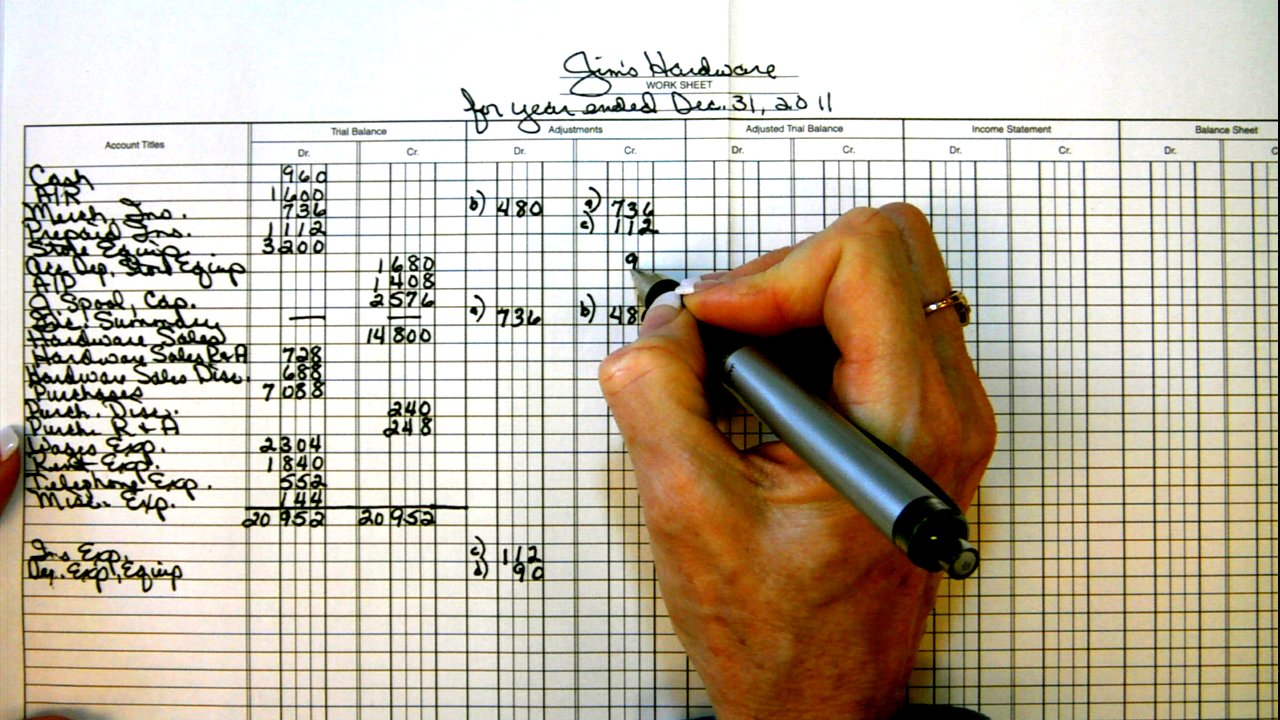 Jim's Hardware
WORK SHEET
for year ended Dec. 31, 2011
Account Titles Trial Balance Adjustments Adjusted Trial Balance Income Statement Balance Sheet
Dr. Cr. Dr. Cr. Dr. Cr. Dr. Cr. Dr. C
Cash 960
A/R 1600
Merch. Ins. 736 b) 480 a) 736
Prepaid Ins. 1112 c) 112
Store Equip. 3200
Acc. Dep. Store Equip 1680 9
A/P 1408
J. Spool, Cap. 2576
Summary — — a) 736 b) 48
Hardware Sales 14800
Hardware Sales R&A 728
Hardware Sales Disc. 688
Purchases 7088
Purch. Disc. 240
Purch. R & A 248
Wages Exp. 2304
Rent Exp. 1840
Telephone Exp. 552
Misc. Exp. 144
20952 20952
Ins Exp. c) 112
Dep. Exp., Equip d) 90